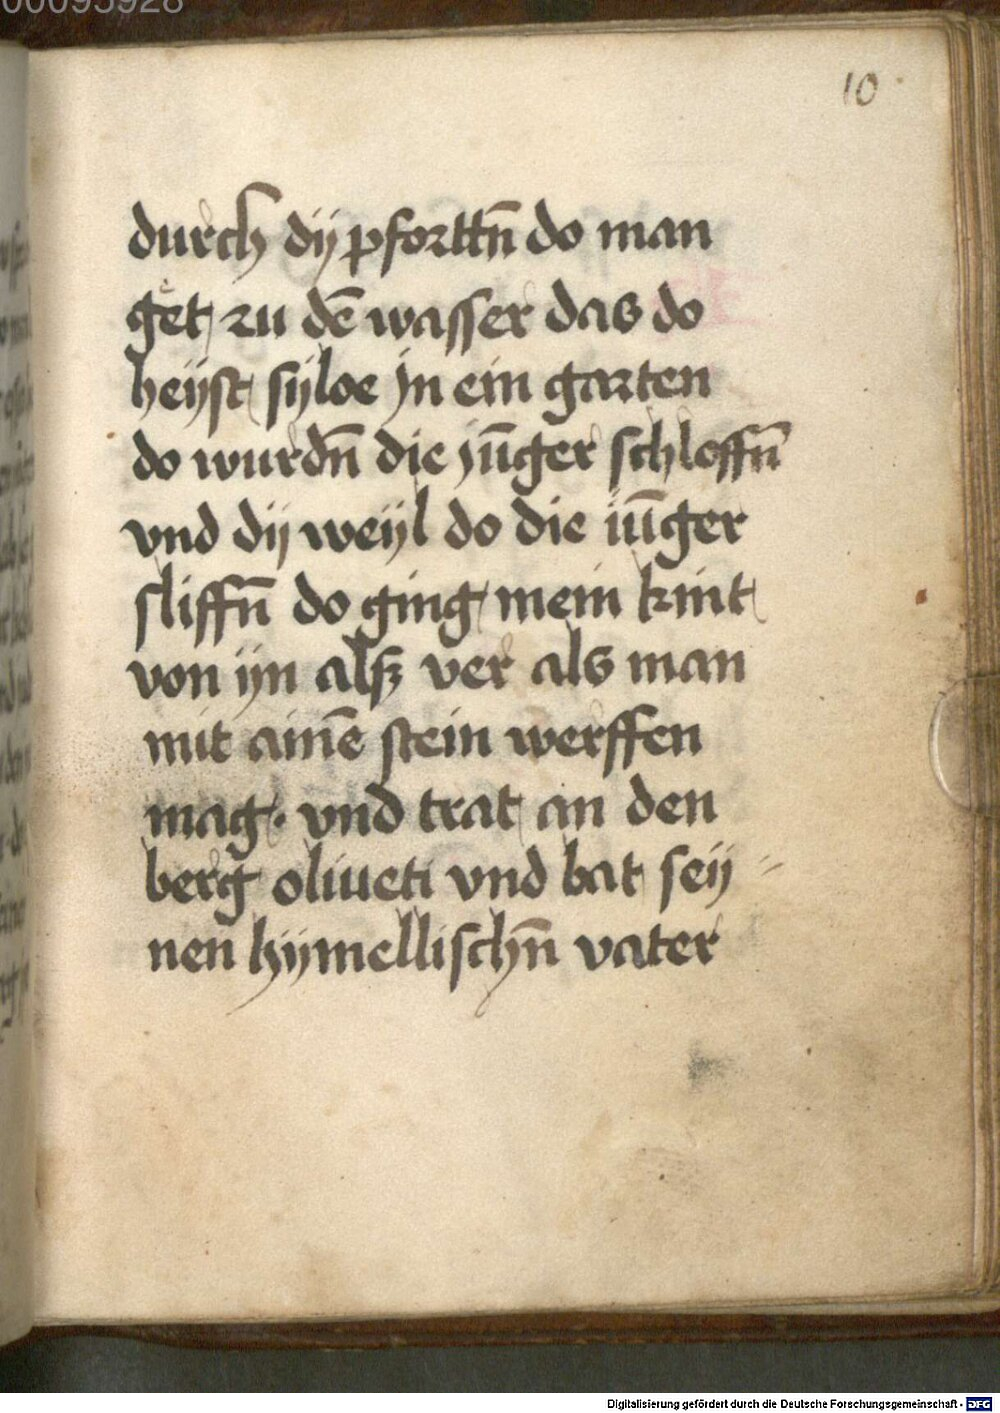 00095928
10
durch dÿ pforttn̄ do man
get zu dē wasser das do
heÿst sÿloe jn ein garten
do wurdn̄ die jūger schloffn̄
vnd dÿ weÿl do die iūger
sliffn̄ do ging mein kint
von ÿn alß ver als man
mit ainē stein werffen
mag · vnd trat an den
berg oliueti vnd bat seÿ
nen hÿmellischn̄ vater
Digitalisierung gefördert durch die Deutsche Forschungsgemeinschaft - DFG